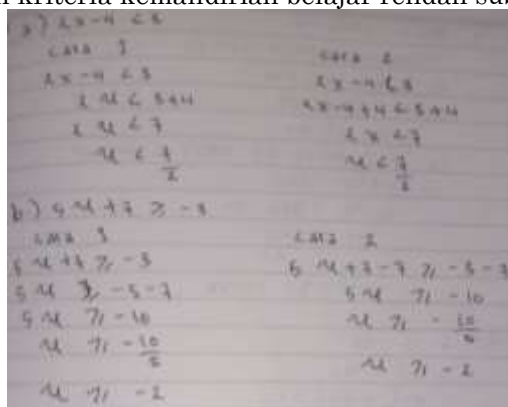 kriteria kemandirian belajar rendah
a) 2x-4 < 3
cara 1
2x-4 < 3
2x < 3+4
2x < 7
x < 7/2
cara 2
2x-4 < 3
2x-4+4 < 3+4
2x < 7
x < 7/2
b) 5x+7 ≥ -3
cara 1
5x+7 ≥ -3
5x ≥ -3-7
5x ≥ -10
x ≥ -10/5
x ≥ -2
cara 2
5x+7-7 ≥ -3-7
5x ≥ -10
x ≥ -10/5
x ≥ -2